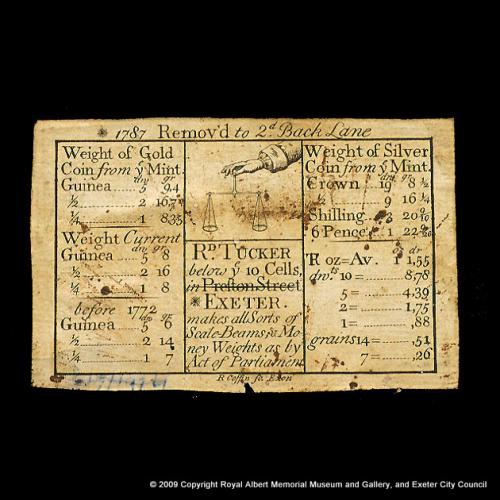 * 1787 Remov'd to 2.d Back Lane
Weight of Gold
Coin from ÿ Mint.
dw. gr.
Guinea 5 9.4
½ 2 16.7
¼ 1 8.35
Weight Current
Guinea 5 8
½ 2 16
¼ 1 8
before 1772
dp gr.
Guinea 5 6
½ 2 14
¼ 1 7
R.D TUCKER
below ÿ 10 Cells,
in Preston Street
* EXETER.
makes all Sorts of
Scale-Beams, & Mo-
ney Weights as by
Act of Parliament
R Coffin sc. Exon
Weight of Silver
Coin from ÿ Mint.
Crown 19 8 ½
½ 9 16 ¼
Shilling 3 20
6 Pence 1 22
T oz = Av. 1,55
dw.ts 10 = 8,78
5 = 4,39
2 = 1,75
1 = ,88
grains 14 = ,51
7 = ,26
© 2009 Copyright Royal Albert Memorial Museum and Gallery, and Exeter City Council